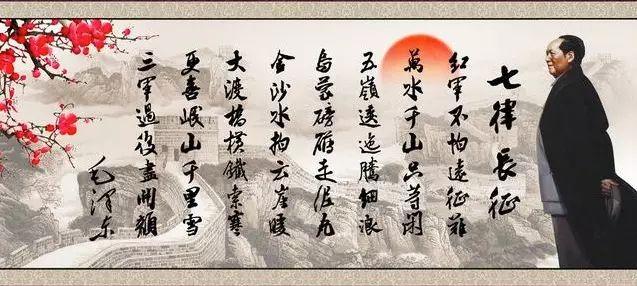 七律長征
紅軍不怕遠征難
萬水千山只等閑
五嶺逶迤騰細浪
烏蒙磅礴走泥丸
金沙水拍云崖暖
大渡橋橫鐵索寒
更喜岷山千里雪
三軍過後盡開顏
毛澤東